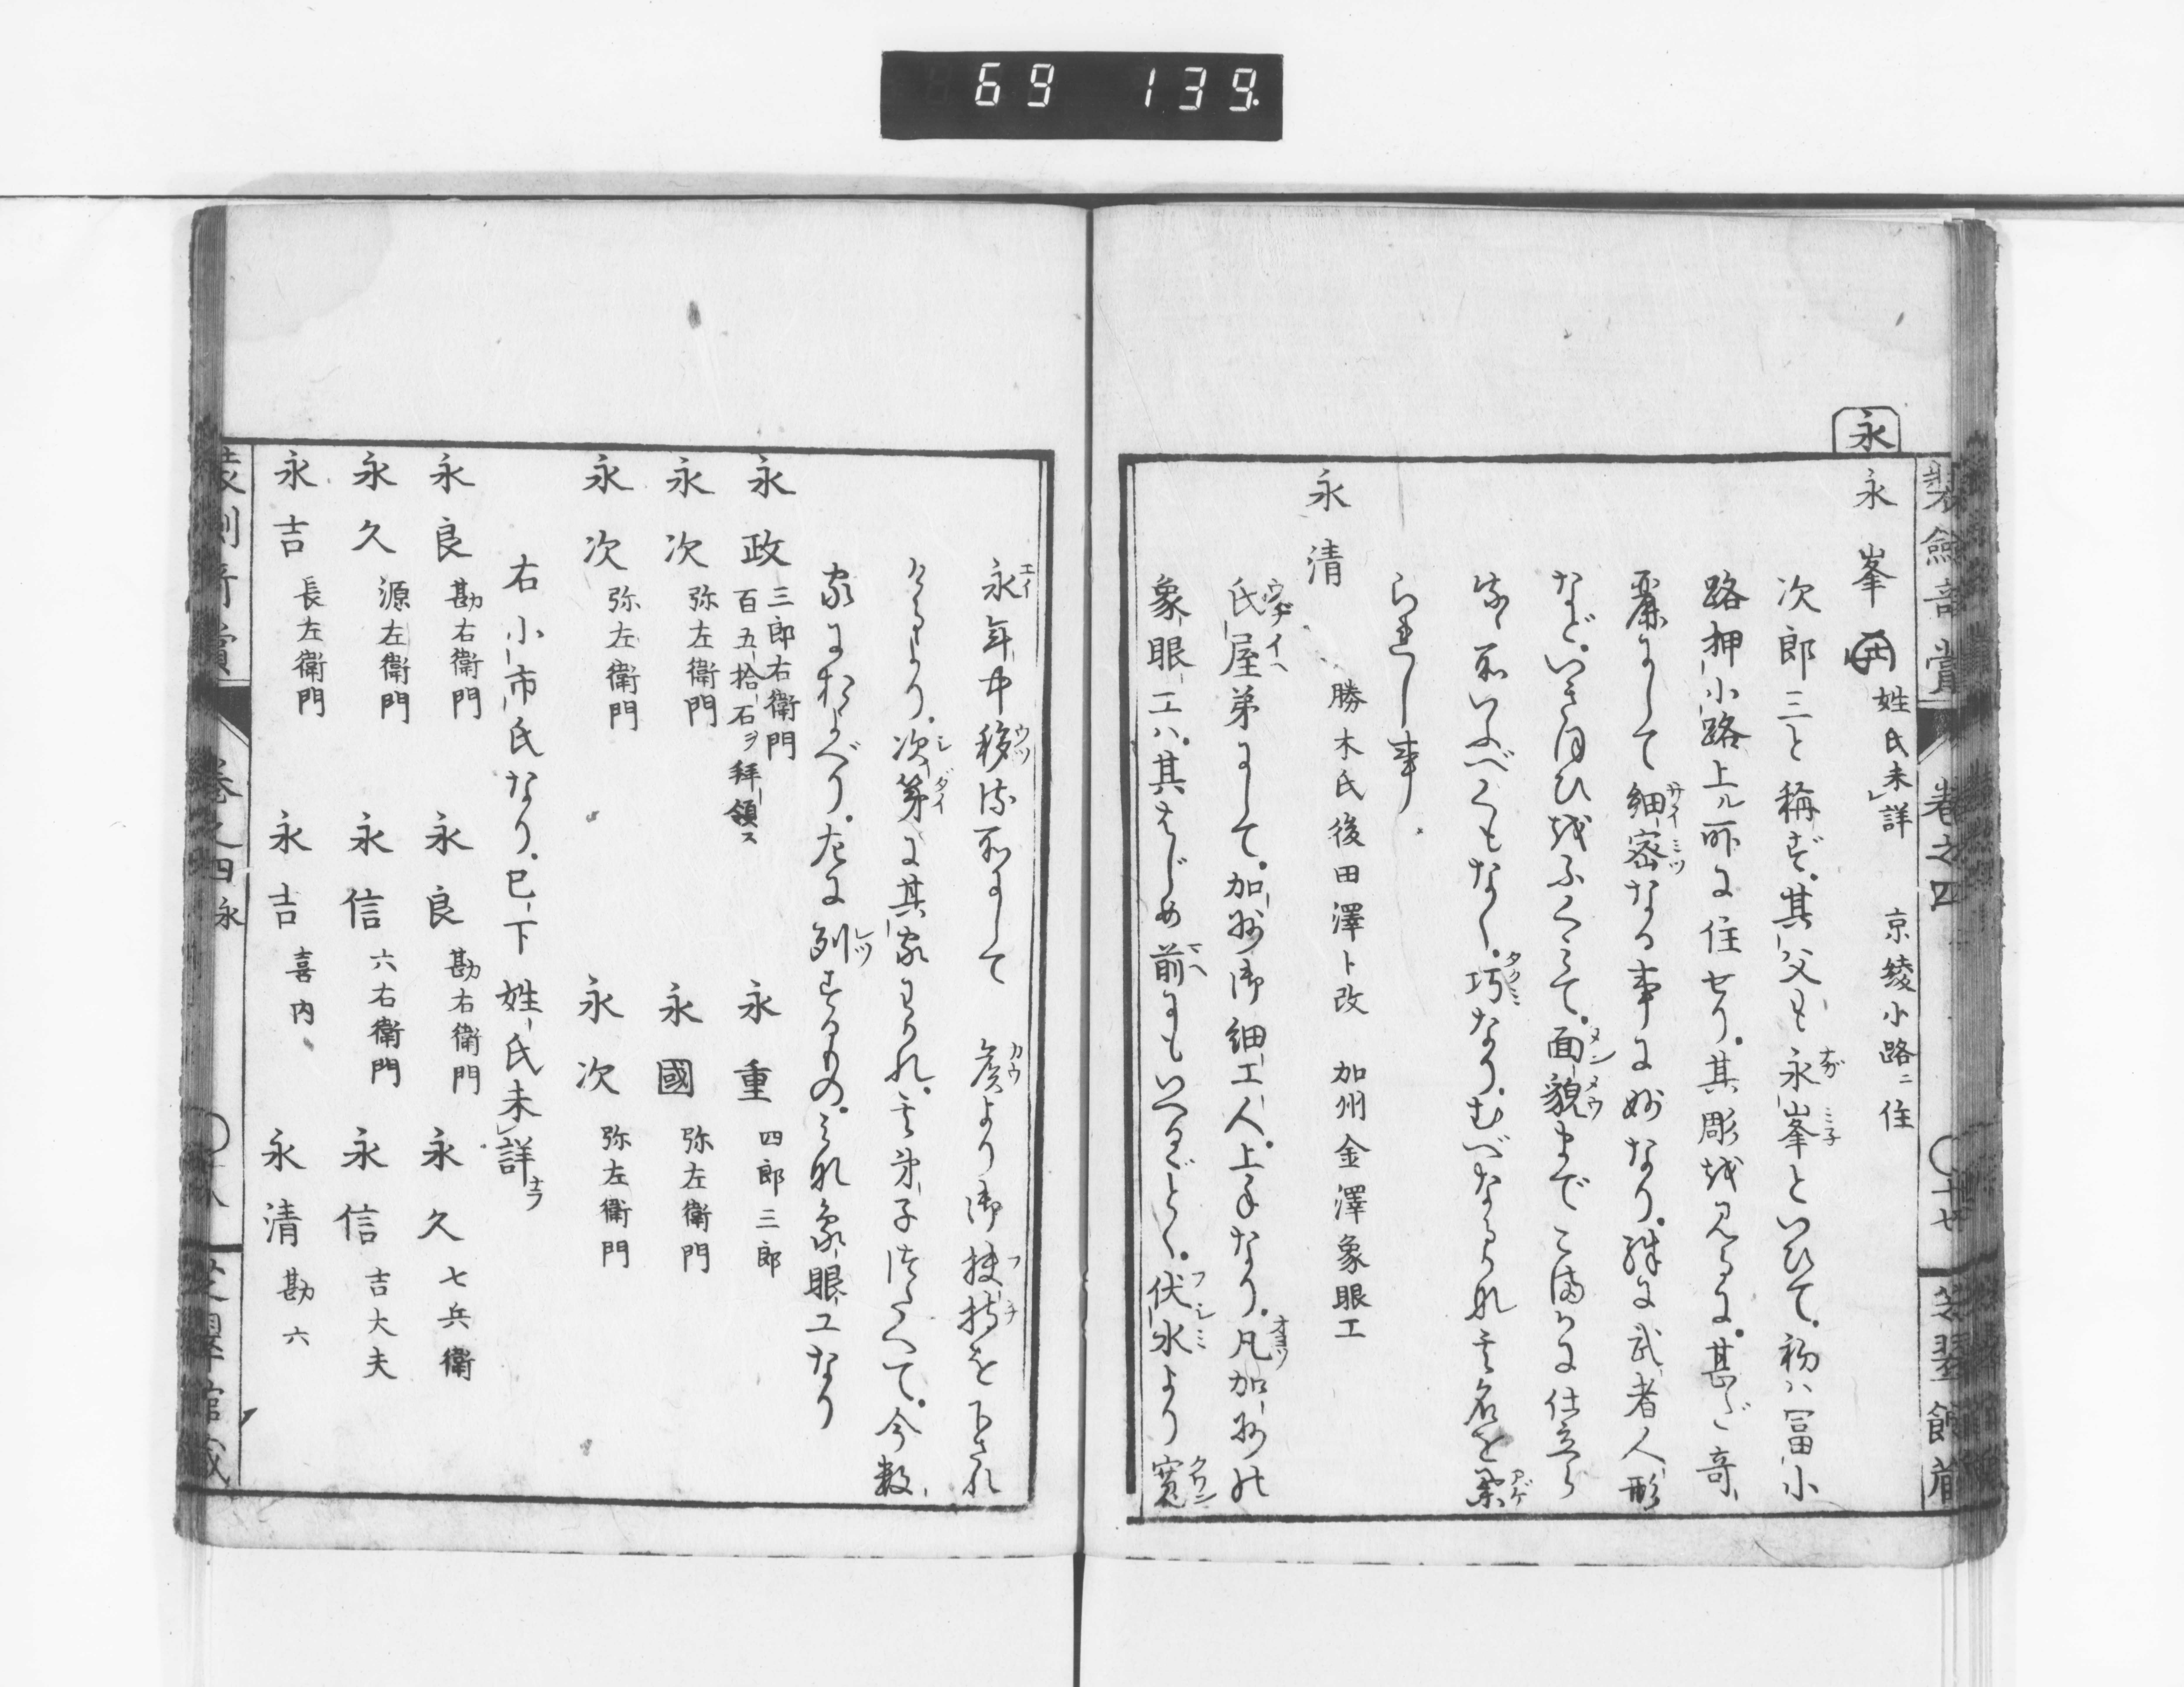 69 139
永
永峯 姓氏未詳 京綾小路ニ住
次郎三と稱ず。其父も永峯といひて。初ハ冨小
路押小路上ル所に住せり。其彫を見るに。甚ダ奇
麗にして細密なる事に妙なり。殊に武者人形
など。いきほひをふくみて。面貌までこまかに仕立
巧なり。むべなるかな其名を
られし事
永清 勝木氏後田澤ト改 加州金澤象眼工
氏屋弟にして。加州御細工人。上手なり。凡加州の
象眼工ハ。其はじめ前にもいへるごとく。伏水より寛
永年中移住にして 矦より御扶持を下され
けるより。次第に其家わかれ。其弟子つたへて。今数
家におよべり。左に列するもの。みな象眼工なり
永政 三郎右衛門 百五拾石ヲ拝領ス 永重 四郎三郎
永次 弥左衛門 永國 弥左衛門
永次 弥左衛門 永次 弥左衛門
右小市氏なり。已下姓氏未詳
永良 勘右衛門 永良 勘右衛門 永久 七兵衛
永久 源左衛門 永信 六右衛門 永信 吉大夫
永吉 長左衛門 永吉 喜内 永清 勘六
卷之四 永